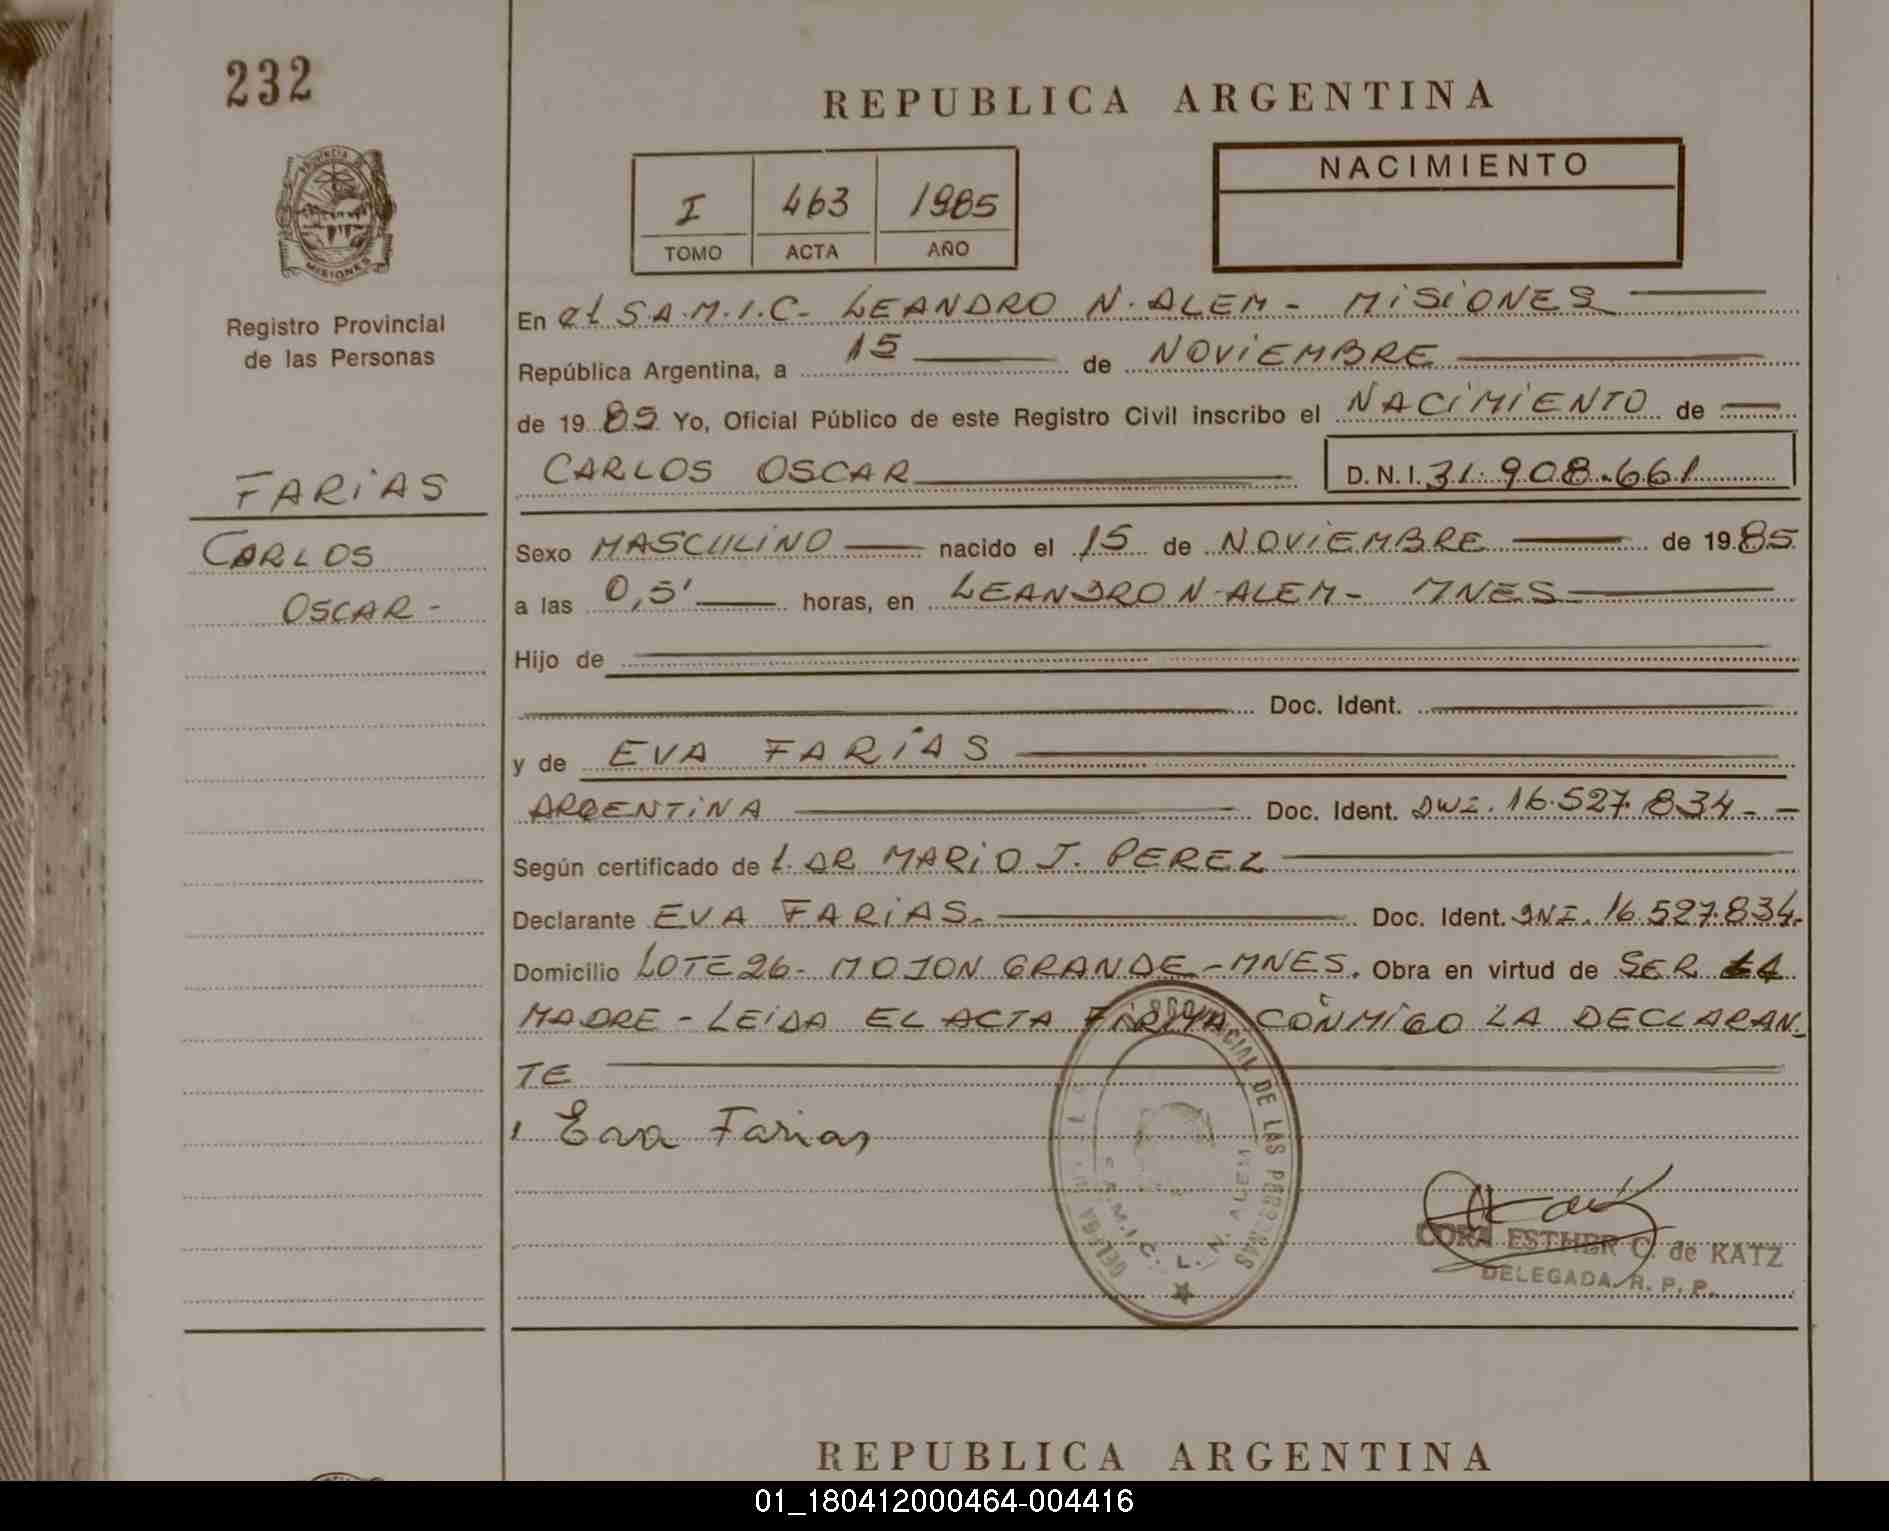 232
REPUBLICA ARGENTINA
PROVINCIA DE
MISIONES
Registro Provincial
de las Personas
I 463 1985
TOMO ACTA AÑO
NACIMIENTO
En el S.A.M.I.C- LEANDRO N. ALEM - MISIONES
República Argentina, a 15 de NOVIEMBRE
de 19 85 Yo, Oficial Público de este Registro Civil inscribo el NACIMIENTO de
CARLOS OSCAR D.N.I. 31.908.661
FARIAS
CARLOS
OSCAR -
Sexo MASCULINO nacido el 15 de NOVIEMBRE de 19 85
a las 0,5' horas, en LEANDRO N. ALEM - MNES
Hijo de
Doc. Ident.
y de EVA FARIAS
ARGENTINA Doc. Ident. DNI. 16.527.834 - -
Según certificado de l. DR MARIO J. PEREZ
Declarante EVA FARIAS. Doc. Ident. DNI. 16.527.834.
Domicilio LOTE 26 - MOJON GRANDE - MNES. Obra en virtud de SER LA
MADRE - LEIDA EL ACTA FIRMA CONMIGO LA DECLARAN_
TE
Eva Farias
PROVINCIAL DE LAS PERSONAS
S.A.M.I.C. L. N. ALEM
CORA ESTHER C. de KATZ
DELEGADA. R. P. P.
REPUBLICA ARGENTINA
01_180412000464-004416